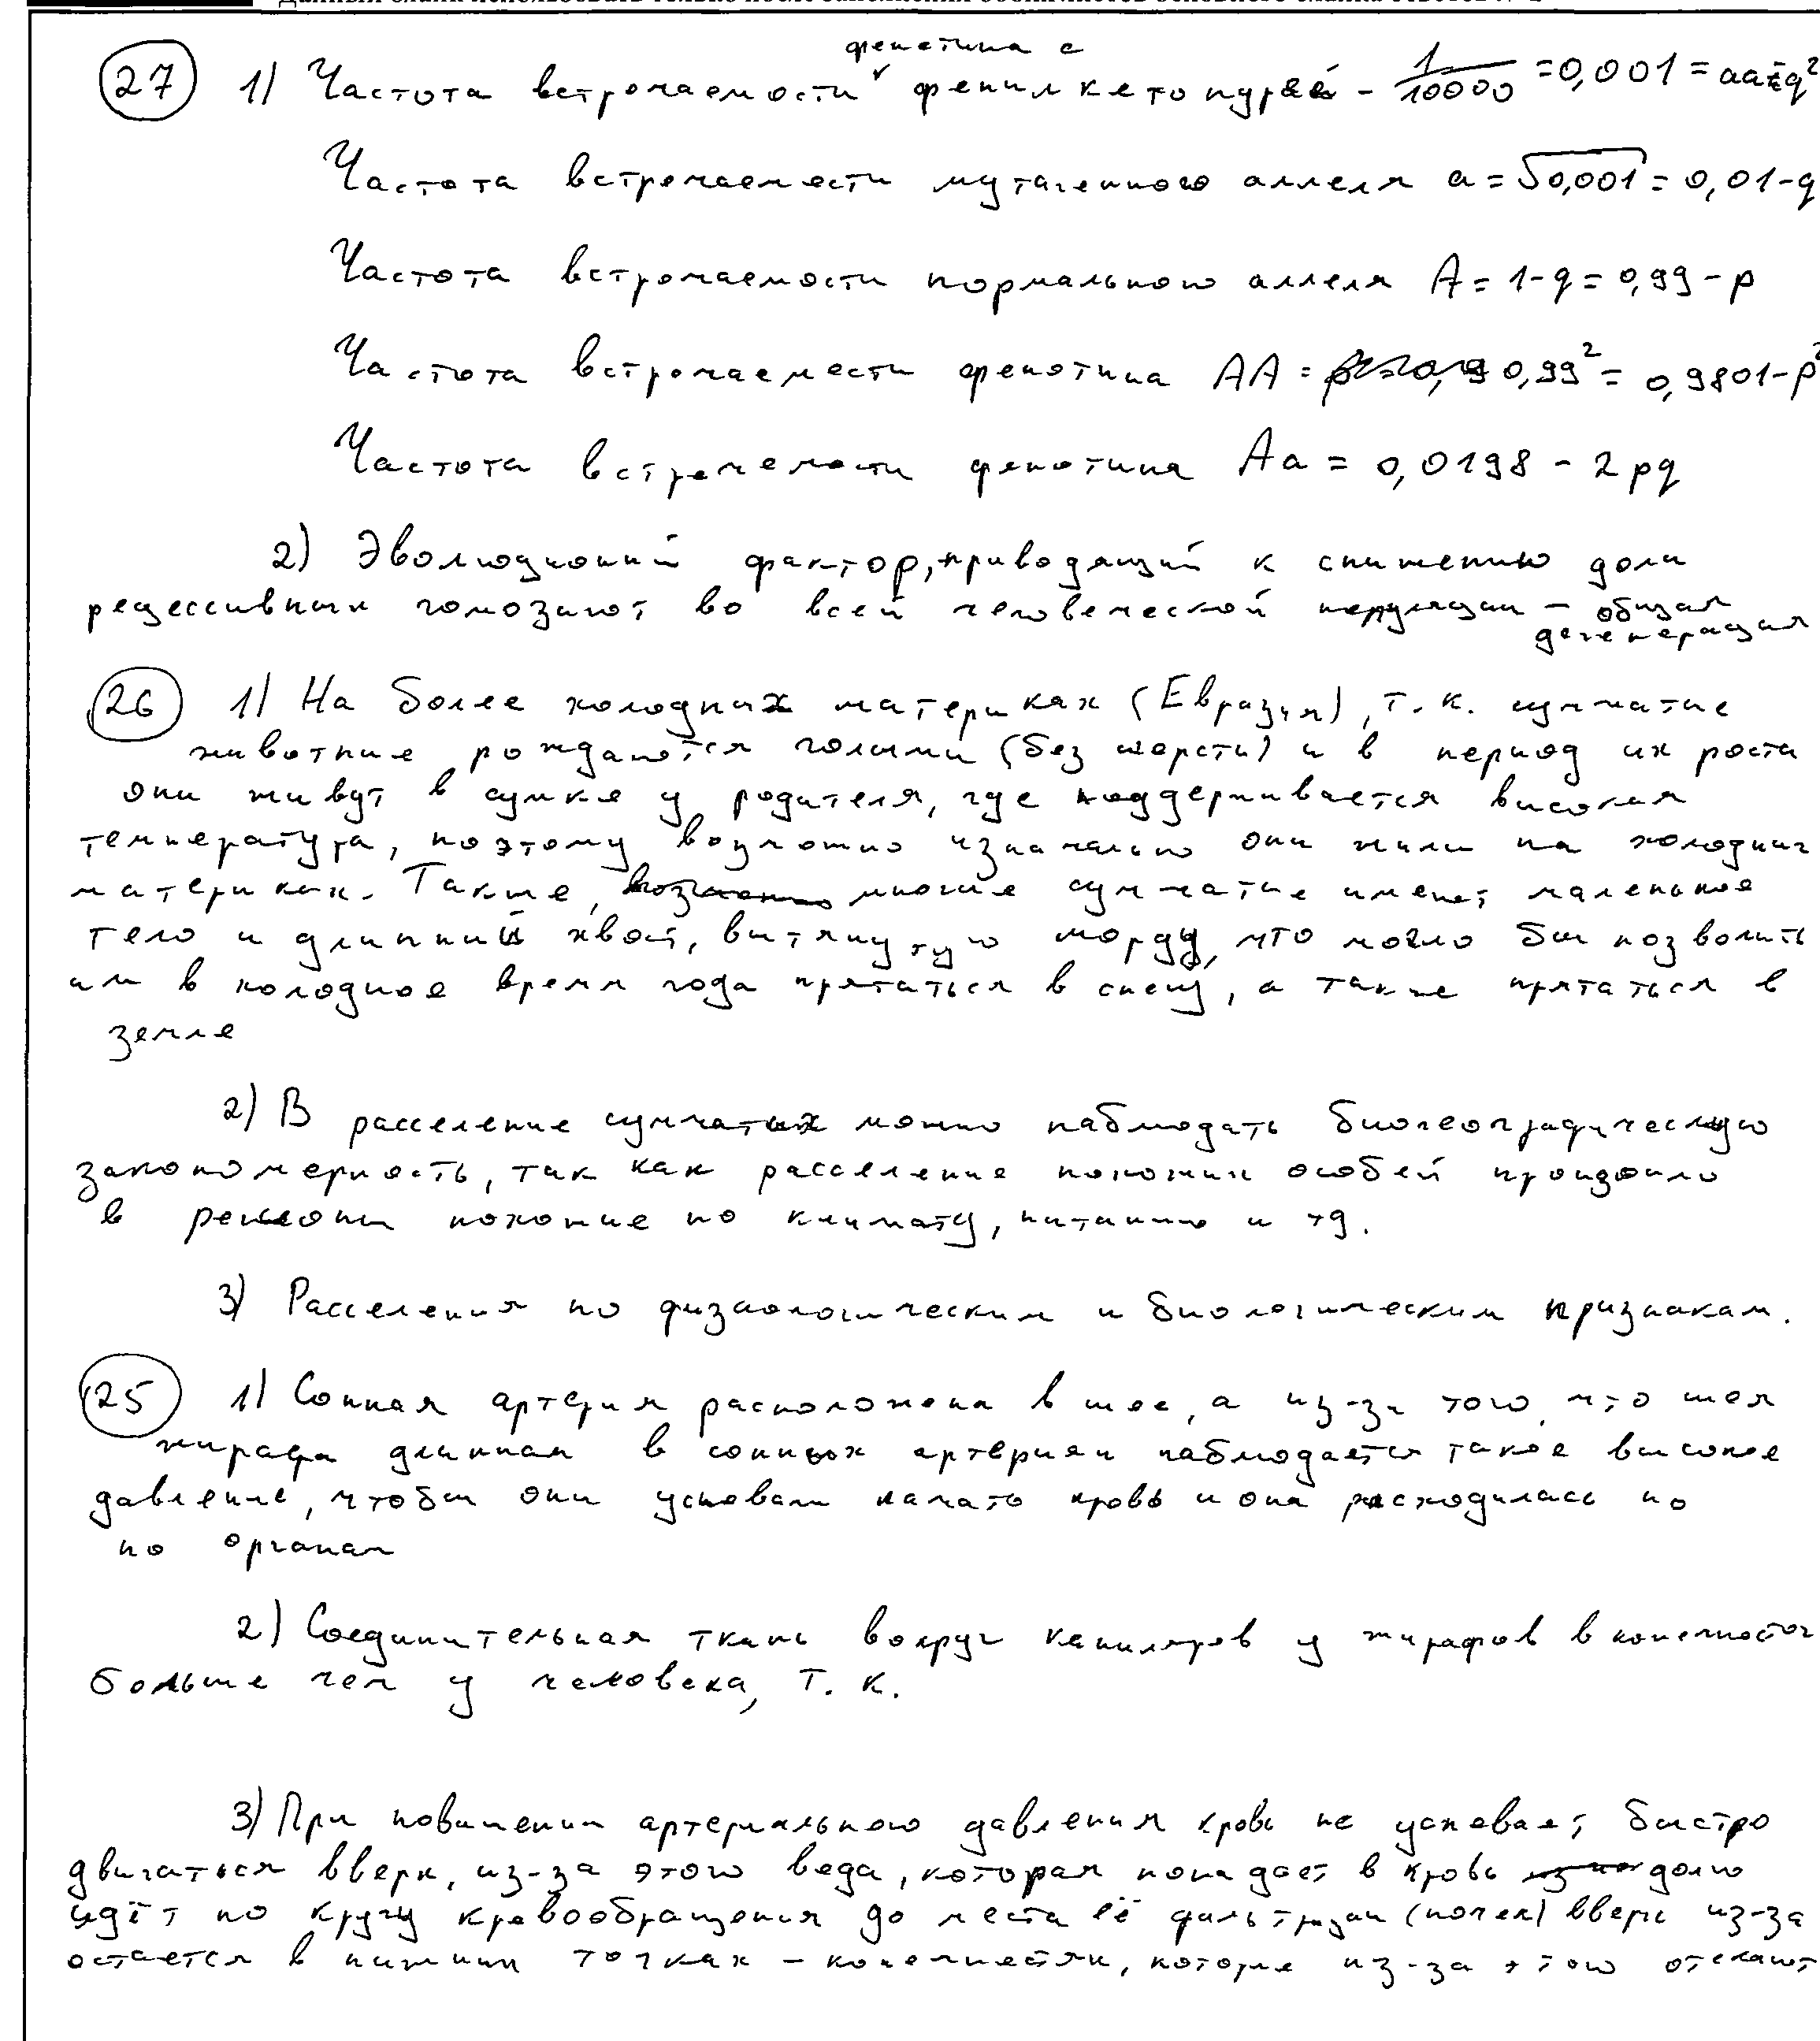 фенотипа с
27 1) Частота встречаемости ᵛ фенилкетонурией - 1/10000 = 0,001 = aa = q²
Частота встречаемости мутагенного аллеля a = √0,001 = 0,01 - q
Частота встречаемости нормального аллеля A = 1-q = 0,99 - p
Частота встречаемости фенотипа AA = 0,99² = 0,9801 - p²
Частота встречемости фенотипа Aa = 0,0198 - 2pq
2) Эволюционий фактор, приводящий к снижению доли
рецессивных гомозигот во всей человеческой популяции - общая
дегенерация
26 1) На более холодных материках (Евразия), т.к. сумчатые
животные рождаются голыми (без шерсти) и в период их роста
они живут в сумке у родителя, где поддерживается высокая
температура, поэтому возможно изначально они жили на холодных
материках. Также, многие сумчатые имеют маленькое
тело и длинный хвост, вытянутую морду, что могло бы позволить
им в холодное время года прятаться в снегу, а также прятаться в
земле
2) В расселение сумчатых можно наблюдать биогеографическую
закономерность, так как расселение похожих особей произошло
в регионы похожие по климату, питанию и тд.
3) Расселения по физиологическим и биологическим признакам.
25 1) Сонная артерия расположена в шее, а из-за того, что шея
жирафа длинная в сонных артериях наблюдается такое высокое
давление, чтобы они успевали качать кровь и она расходилась по
по органам
2) Соединительная ткань вокруг капиляров у жирафов в конечностях
больше чем у человека, т.к.
3) При повышении артериального давления кровь не успевает быстро
двигаться вверх, из-за этого вода, которая попадает в кровь долго
идёт по кругу кровообращения до места её фильтрации (почек) вверх из-за
остается в нижних точках - конечностях, которые из-за этого отекают